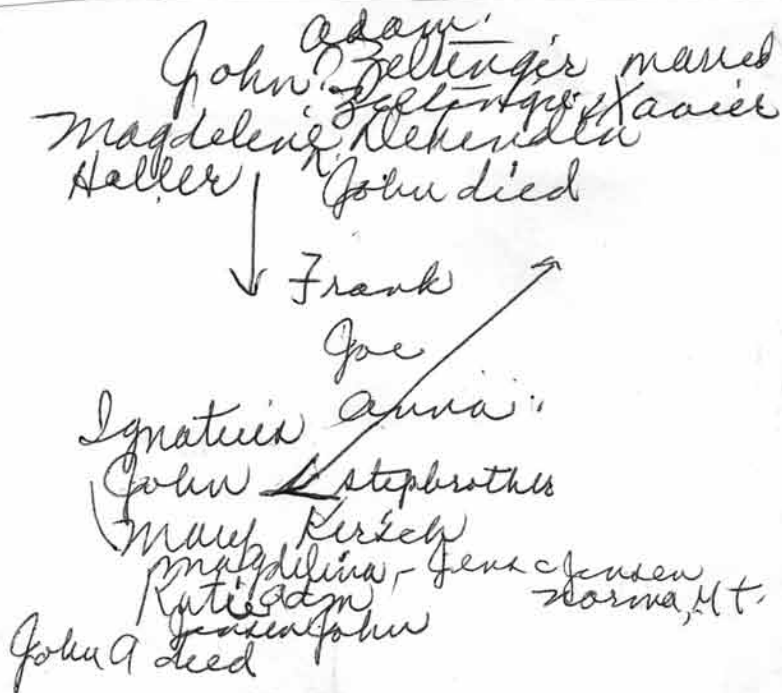 Adam
John Zeltinger married
Zeltinger Xavier
Magdelene
Haller John died
Frank
Joe
Anna
Ignatius
John stepbrother
Mary Kersch
Magdelina - Jens Jensen
Katie Adm Norma, Mt.
Jensen John
John A died